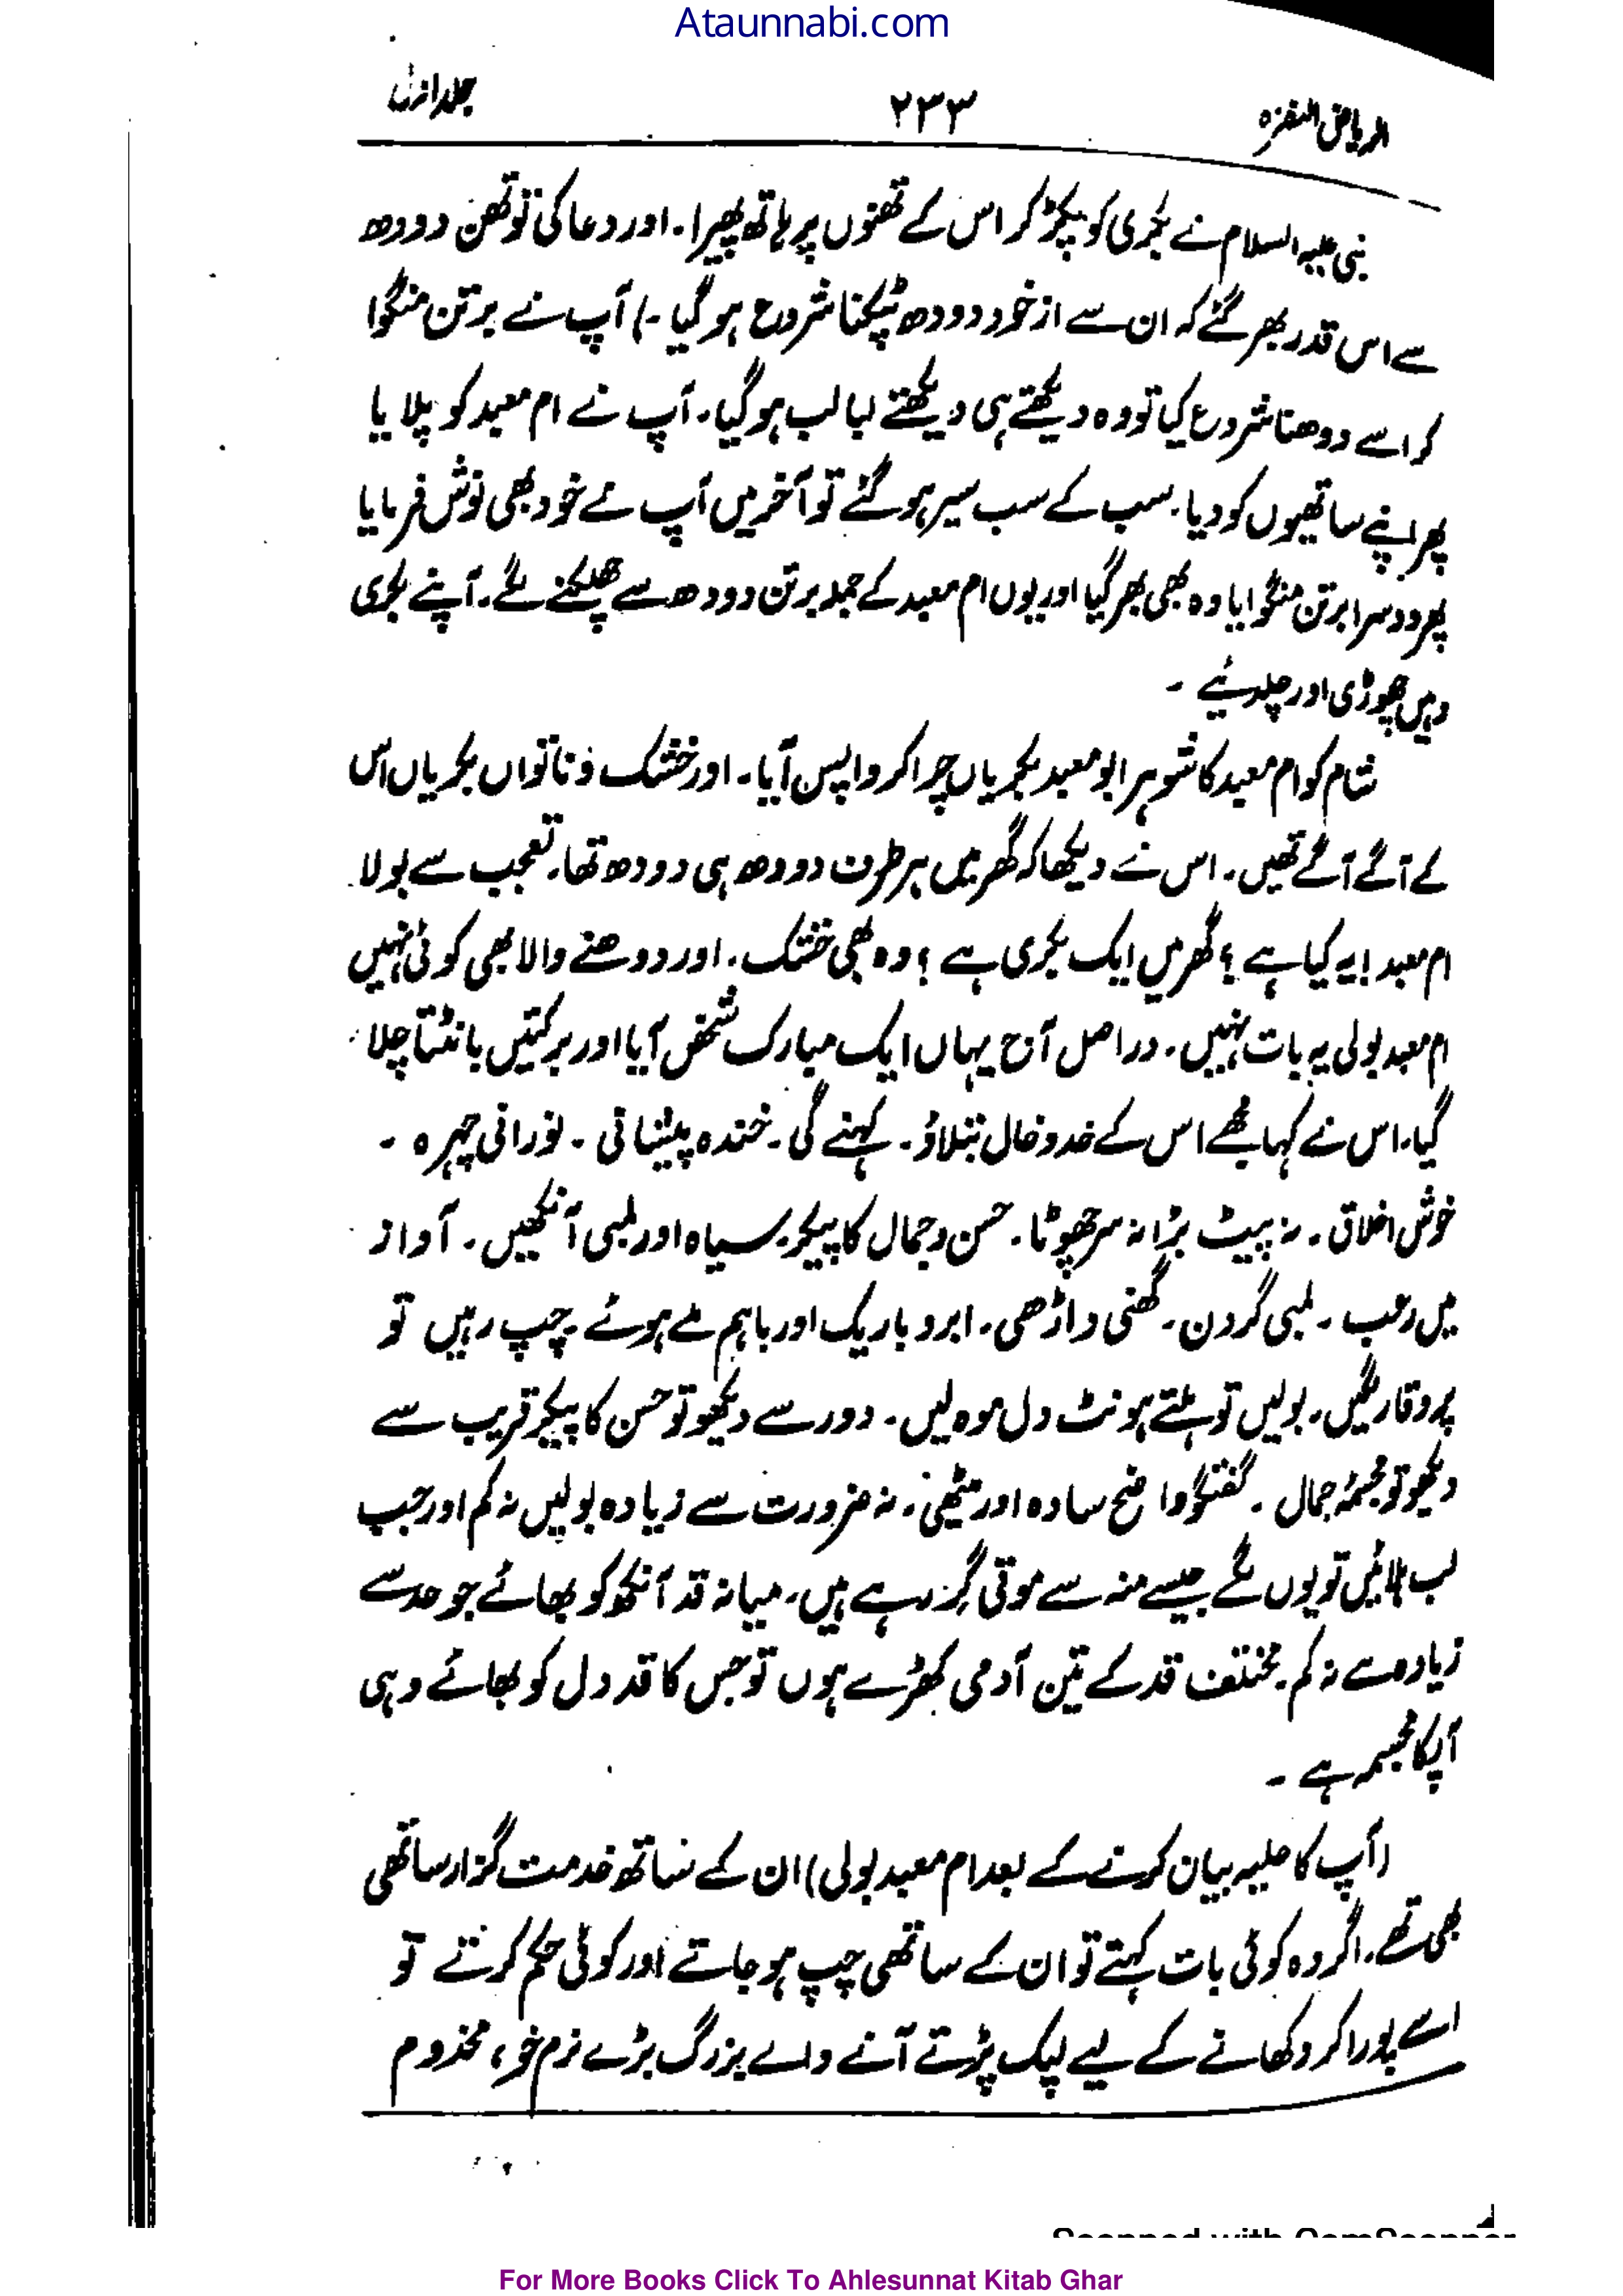 Ataunnabi.com
الریاض النضرہ ۲۳۳ جلد اول
نبی علیہ السلام نے بکری کو پکڑ کر اس کے تھنوں پر ہاتھ پھیرا۔ اور دعا کی تو تھن دودھ
سے اس قدر بھر گئے کہ ان سے از خود دودھ ٹپکنا شروع ہو گیا ۔) آپ نے برتن منگوا
کر اسے دوھنا شروع کیا تو وہ دیکھتے ہی دیکھتے لبالب ہو گیا۔ آپ نے ام معبد کو پلایا
پھر اپنے ساتھیوں کو دیا۔ سب کے سب سیر ہو گئے تو آخر میں آپ نے خود بھی نوش فرمایا
پھر دوسرا برتن منگوایا وہ بھی بھر گیا اور یوں ام معبد کے جملہ برتن دودھ سے چھلکنے لگے۔ آپنے بکری
وہیں چھوڑی اور چلدئیے ۔
شام کو ام معبد کا شوہر ابو معبد بکریاں چرا کر واپس آیا۔ اور خشک و ناتواں بکریاں اس
کے آگے آگے تھیں۔ اس نے دیکھا کہ گھر میں ہر طرف دودھ ہی دودھ تھا۔ تعجب سے بولا
ام معبد! یہ کیا ہے ؟ گھر میں ایک بکری ہے ؟ وہ بھی خشک۔ اور دوھنے والا بھی کوئی نہیں
ام معبد بولی یہ بات نہیں۔ دراصل آج یہاں ایک مبارک شخص آیا اور برکتیں بانٹتا چلا
گیا۔ اس نے کہا مجھے اس کے خدوخال بتلاؤ۔ کہنے لگی۔ خندہ پیشانی ۔ نورانی چہرہ ۔
خوش اخلاق ۔ نہ پیٹ بڑا نہ سر چھوٹا۔ حسن و جمال کا پیکر۔ سیاہ اور لمبی آنکھیں۔ آواز
میں رعب ۔ لمبی گردن۔ گھنی داڑھی۔ ابرو باریک اور باہم ملے ہوئے ۔ چپ رہیں تو
پر وقار لگیں۔ بولیں تو ہلتے ہونٹ دل موہ لیں۔ دور سے دیکھو تو حسن کا پیکر قریب سے
دیکھو تو مجسمۂ جمال ۔ گفتگو واضح سادہ اور میٹھی۔ نہ ضرورت سے زیادہ بولیں نہ کم اور جب
لب ہلائیں تو یوں لگے جیسے منہ سے موتی گر رہے ہیں۔ میانہ قد آنکھ کو بھائے جو حد سے
زیادہ ہے نہ کم۔ مختلف قد کے تین آدمی کھڑے ہوں تو جس کا قد دل کو بھائے وہی
آپکا مجسمہ ہے ۔
(آپ کا حلیہ بیان کرنے کے بعد ام معبد بولی) ان کے ساتھ خدمت گزار ساتھی
بھی تھے۔ اگر وہ کوئی بات کہتے تو ان کے ساتھی چپ ہو جاتے اور کوئی حکم کرتے تو
اسے پورا کر دکھانے کے لیے لپک پڑتے آنے والے بزرگ بڑے نرم خو، مخدوم
Scanned with CamScanner
For More Books Click To Ahlesunnat Kitab Ghar